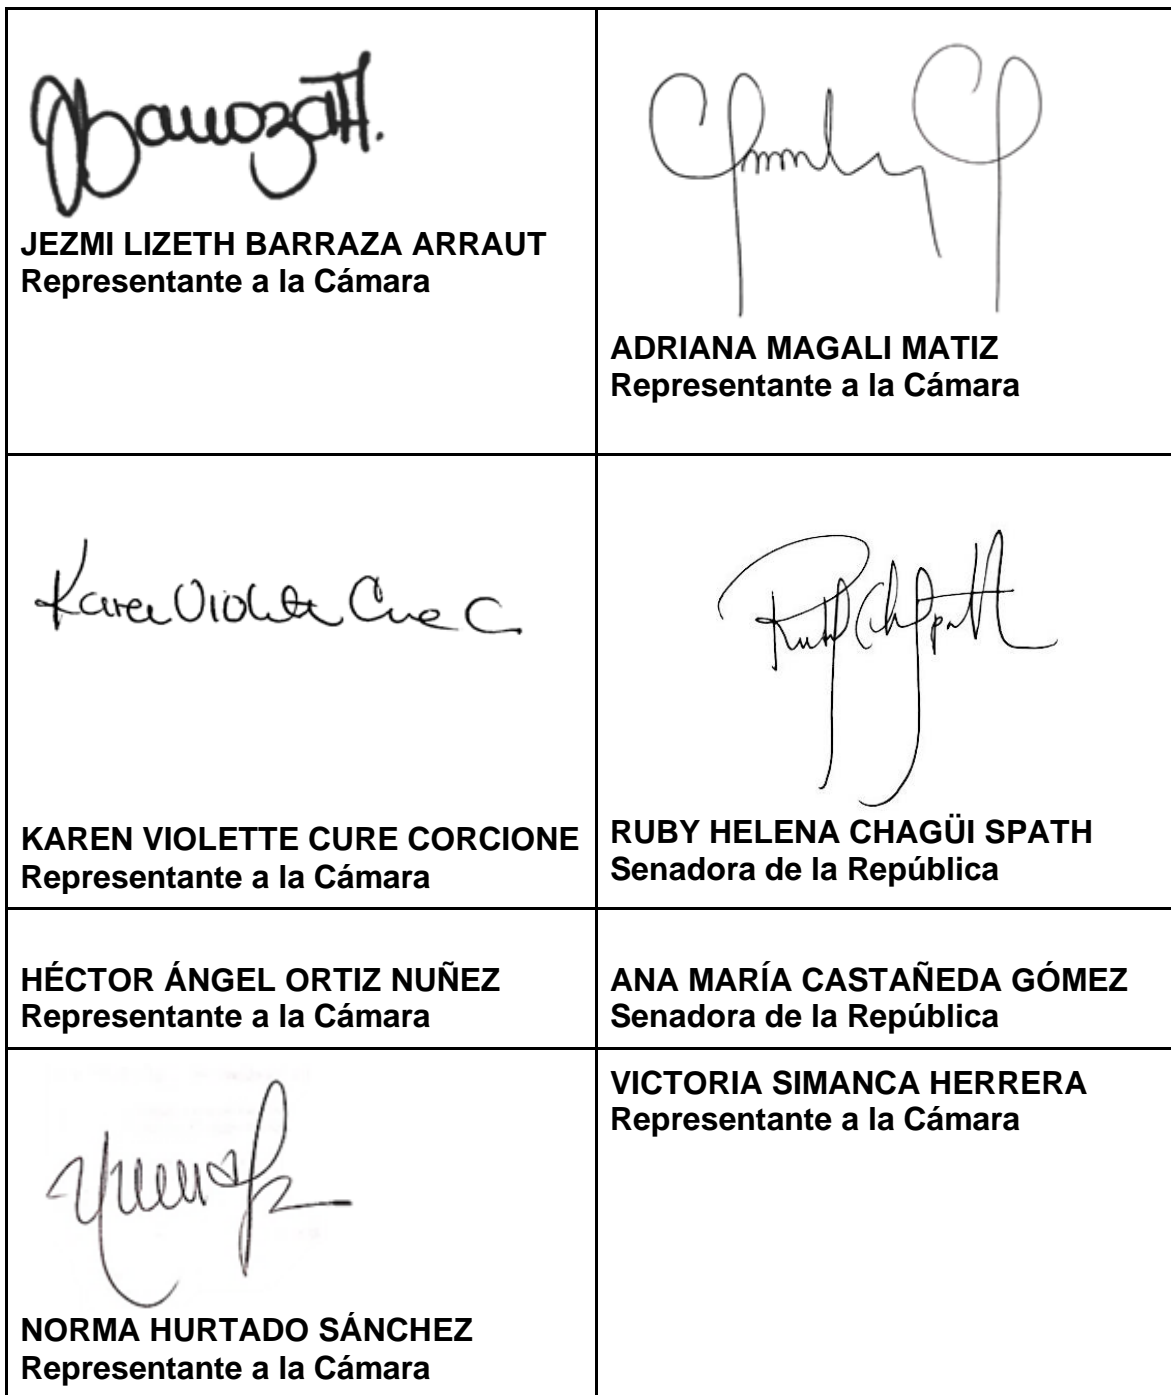 JEZMI LIZETH BARRAZA ARRAUT
Representante a la Cámara
ADRIANA MAGALI MATIZ
Representante a la Cámara
Karen Violette Cure C
KAREN VIOLETTE CURE CORCIONE
Representante a la Cámara
RUBY HELENA CHAGÜI SPATH
Senadora de la República
HÉCTOR ÁNGEL ORTIZ NUÑEZ
Representante a la Cámara
ANA MARÍA CASTAÑEDA GÓMEZ
Senadora de la República
NORMA HURTADO SÁNCHEZ
Representante a la Cámara
VICTORIA SIMANCA HERRERA
Representante a la Cámara